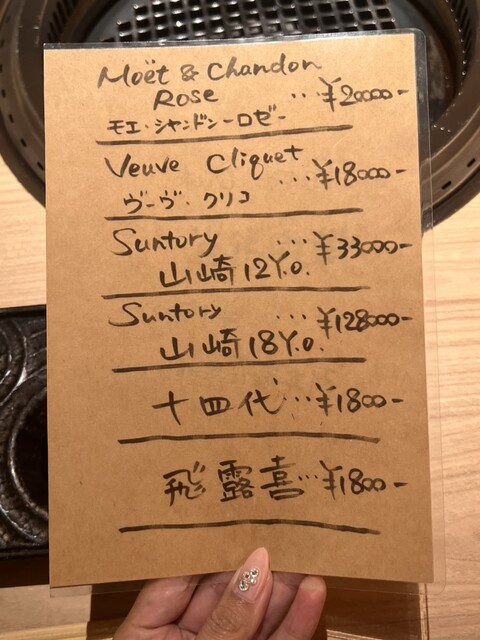 Moët & Chandon
Rose ...¥20000-
モエ・シャンドン一ロゼー
Veuve Cliquet
...¥18000-
ヴーヴ・クリコ
Suntory ...¥33000-
山崎12Y.O.
Suntory ...¥128000-
山崎18Y.O.
十四代...¥1800-
飛露喜...¥1800-